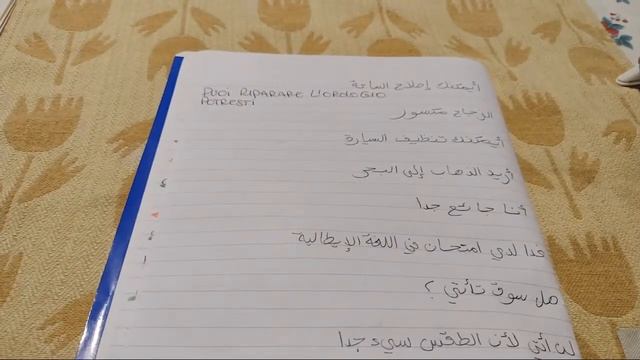 أيمكنك إصلاح الساعة
PUOI RIPARARE L'OROLOGIO
POTRESTI
الزجاج مكسور
أيمكنك تنظيف السيارة
أريد الذهاب إلى البحر
أنا جائع جدا
غدا لدي امتحان في اللغة الإيطالية
هل سوف تأتي ؟
لن أتي لأن الطقس سيء جدا